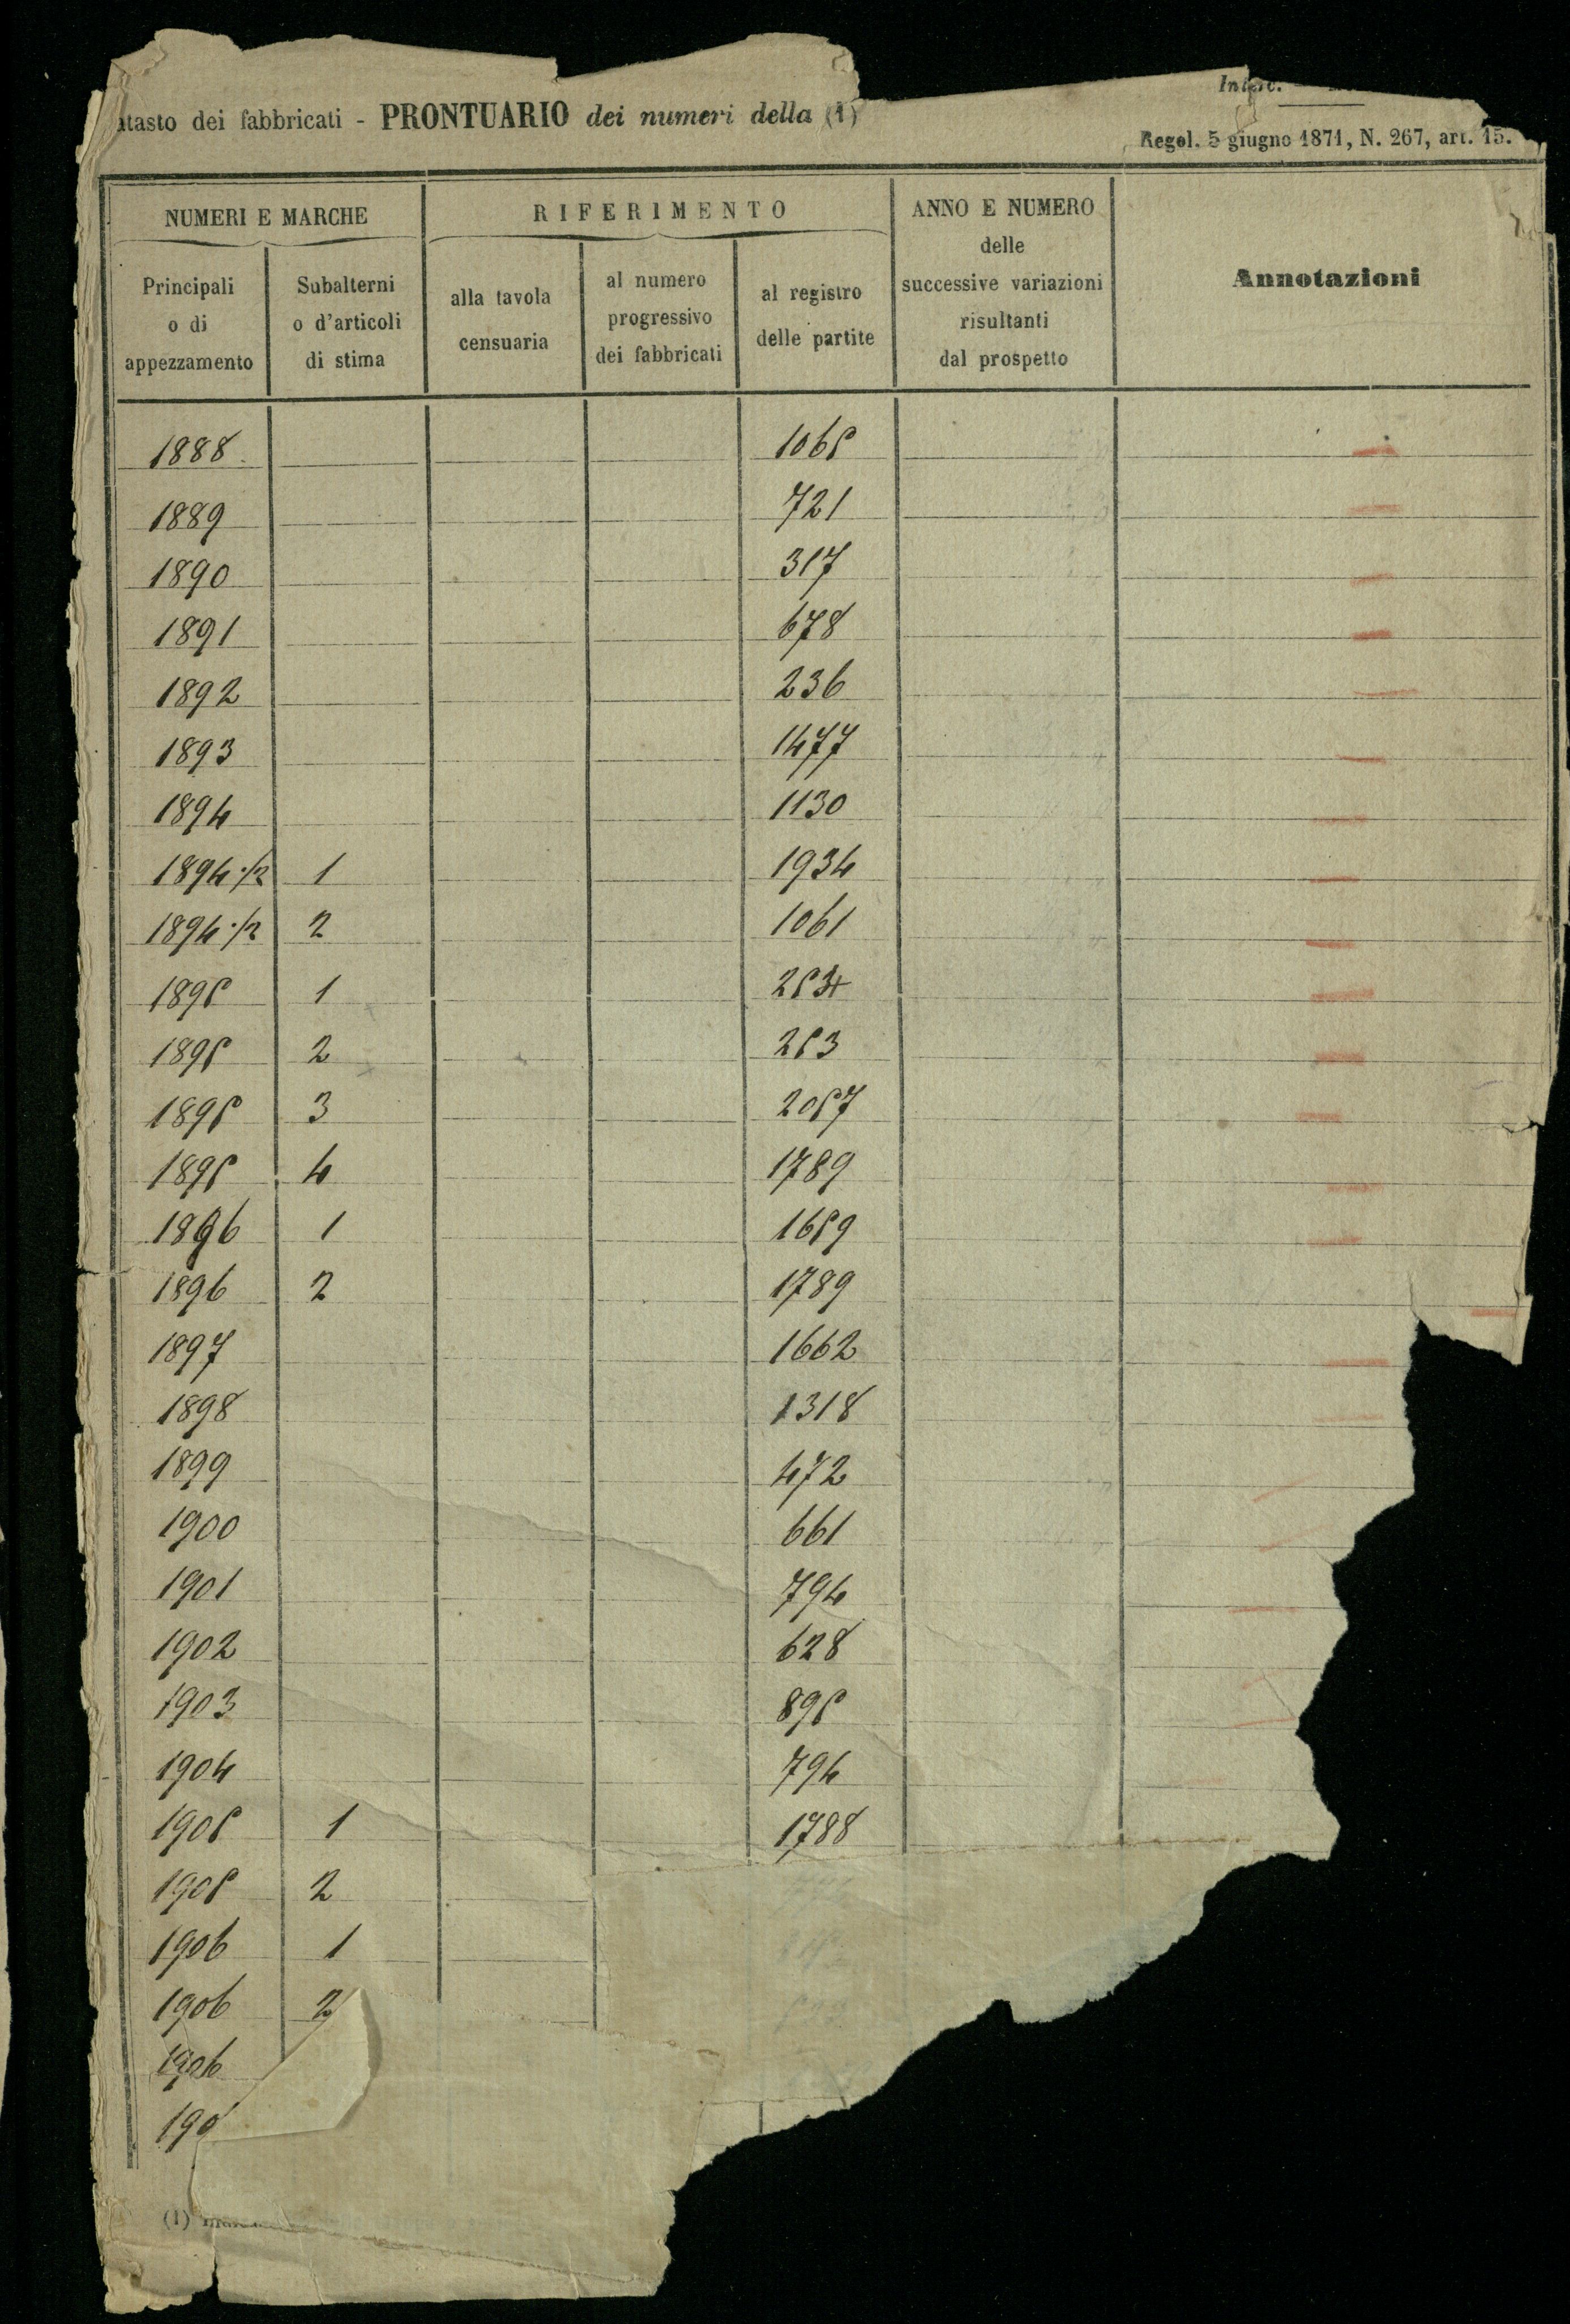 atasto dei fabbricati - PRONTUARIO dei numeri della (1)
Regol. 5 giugno 1871, N. 267, art. 15.
NUMERI E MARCHE
RIFERIMENTO
ANNO E NUMERO
delle
successive variazioni
risultanti
dal prospetto
Annotazioni
Principali
o di
appezzamento
Subalterni
o d'articoli
di stima
alla tavola
censuaria
al numero
progressivo
dei fabbricati
al registro
delle partite
1888 1065
1889 721
1890 317
1891 678
1892 236
1893 1477
1894 1130
1894 1/2 1 1934
1894 1/2 2 1061
1895 1 254
1895 2 253
1895 3 2057
1895 4 1789
1896 1 1659
1896 2 1789
1897 1662
1898 1318
1899 472
1900 661
1901 794
1902 628
1903 895
1904 794
1905 1 1788
1905 2
1906 1
1906 2
1906
190
(1)